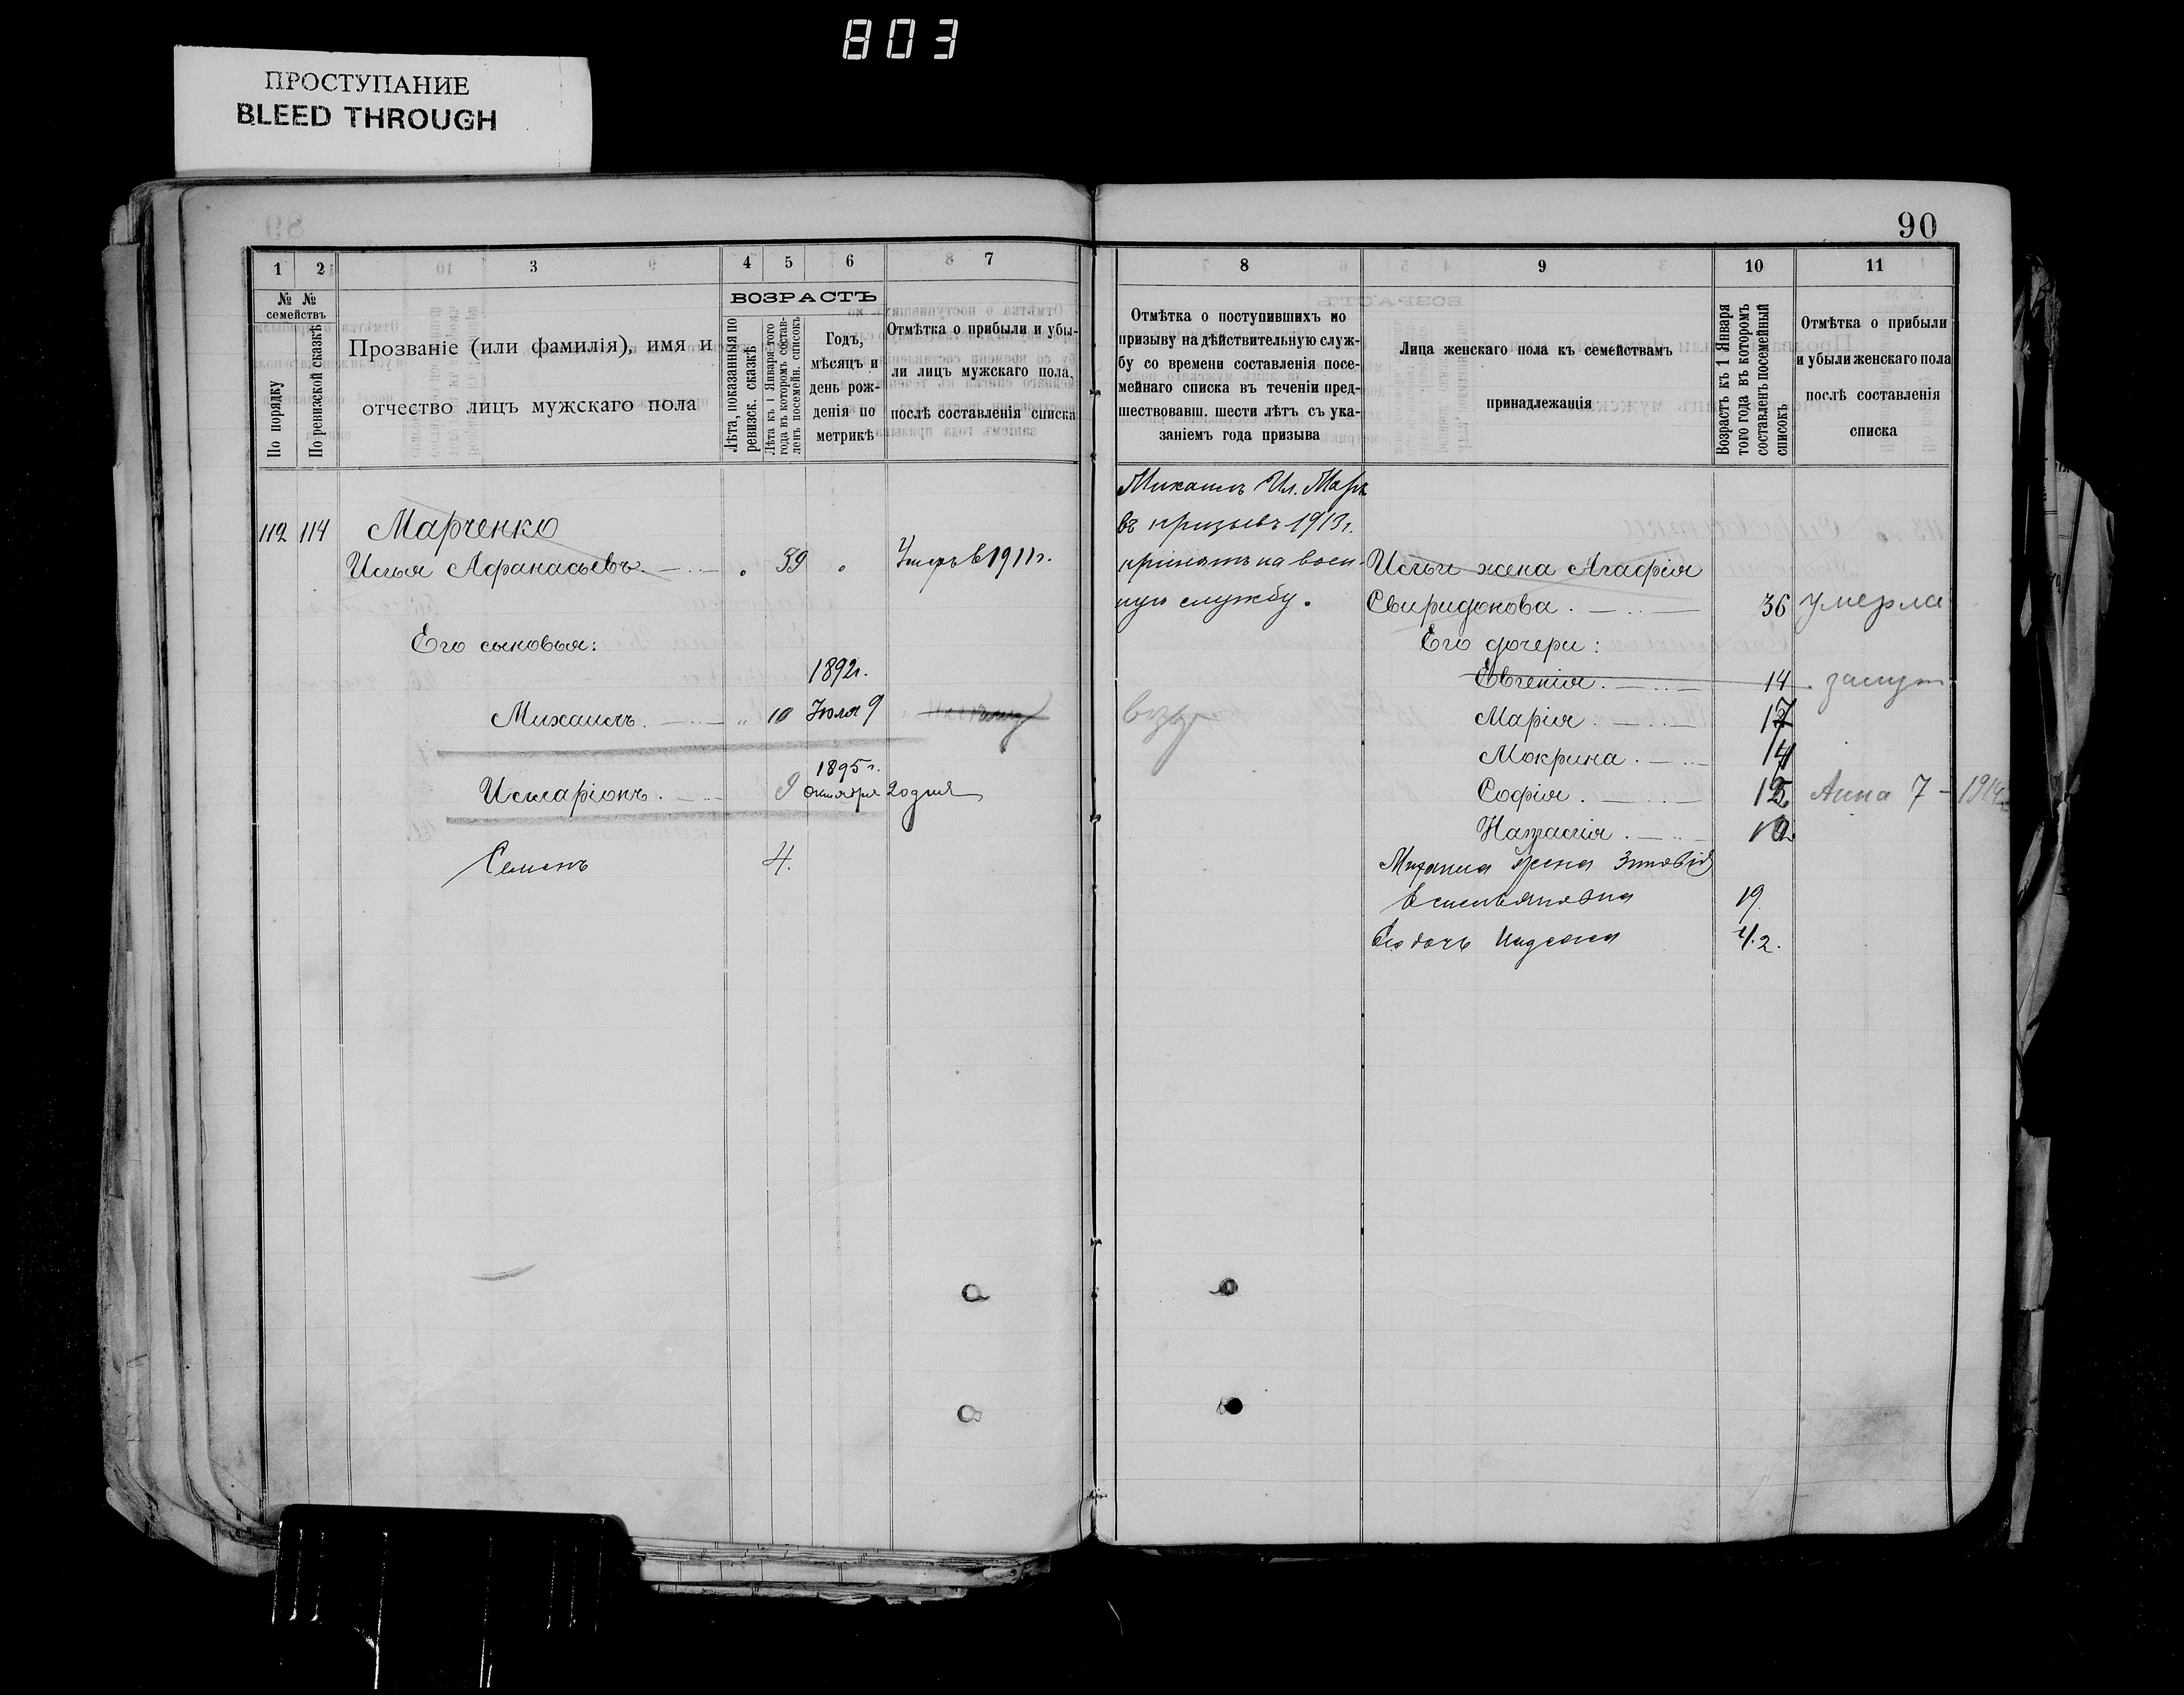 803
ПРОСТУПАНИЕ
BLEED THROUGH
90
1 2 3 4 5 6 7
№ № семействъ
По порядку
По ревизской сказкѣ
Прозваніе (или фамилія), имя и
отчество лицъ мужскаго пола
ВОЗРАСТЪ
Лѣта, показанныя по
ревизск. сказкѣ
Лѣта къ 1 Января того
года въ которомъ состав-
ленъ посемейн. списокъ
Годъ,
мѣсяцъ и
день рож-
денія по
метрикѣ
Отмѣтка о прибыли и убы-
ли лицъ мужскаго пола,
послѣ составленія списка
112 114 Марченко
Илья Афанасьевъ. 39 Умеръ в 1911 г.
Его сыновья:
1892 г.
Михаилъ. 10 Июля 9
1895 г.
Иларіонъ. 9 Октября 20 дня
Семенъ 4.
8 9 10 11
Отмѣтка о поступившихъ по
призыву на дѣйствительную служ-
бу со времени составленія посе-
мейнаго списка въ теченіи пред-
шествовавш. шести лѣтъ съ ука-
заніемъ года призыва
Лица женскаго пола къ семействамъ
принадлежащія
Возрастъ къ 1 Января
того года въ которомъ
составленъ посемейный
списокъ
Отмѣтка о прибыли
и убыли женскаго пола
послѣ составленія
списка
Михаилъ Ил. Марч
въ призывъ 1913 г.
принятъ на воен-
ную службу.
Ильи жена Агафія
Свиридонова. 36 умерла
Его дочери:
Евгенія. 14 замуж
Марія. 17
Мокрина. 14
Софія. 12. Анна 7 - 1914
Наталія. 10.
Михаила жена Зиновія
Емельяновна 19.
Его дочь